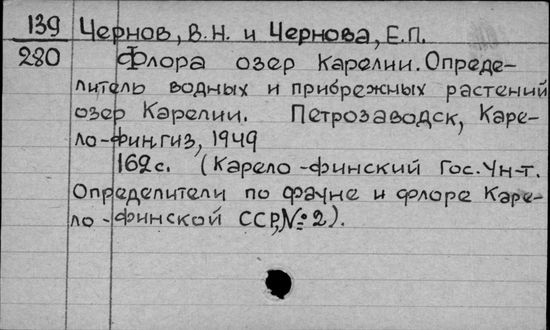 139 Чернов, В.Н. и Чернова, Е.П.
280 Флора озер Карелии. Опреде-
литель водных и прибрежных растений
озер Карелии. Петрозаводск, Каре-
ло-фингиз, 1949
162с. (Карело-финский Гос. Ун-т.
Определители по фауне и флоре Каре-
ло-финской ССР, №2).